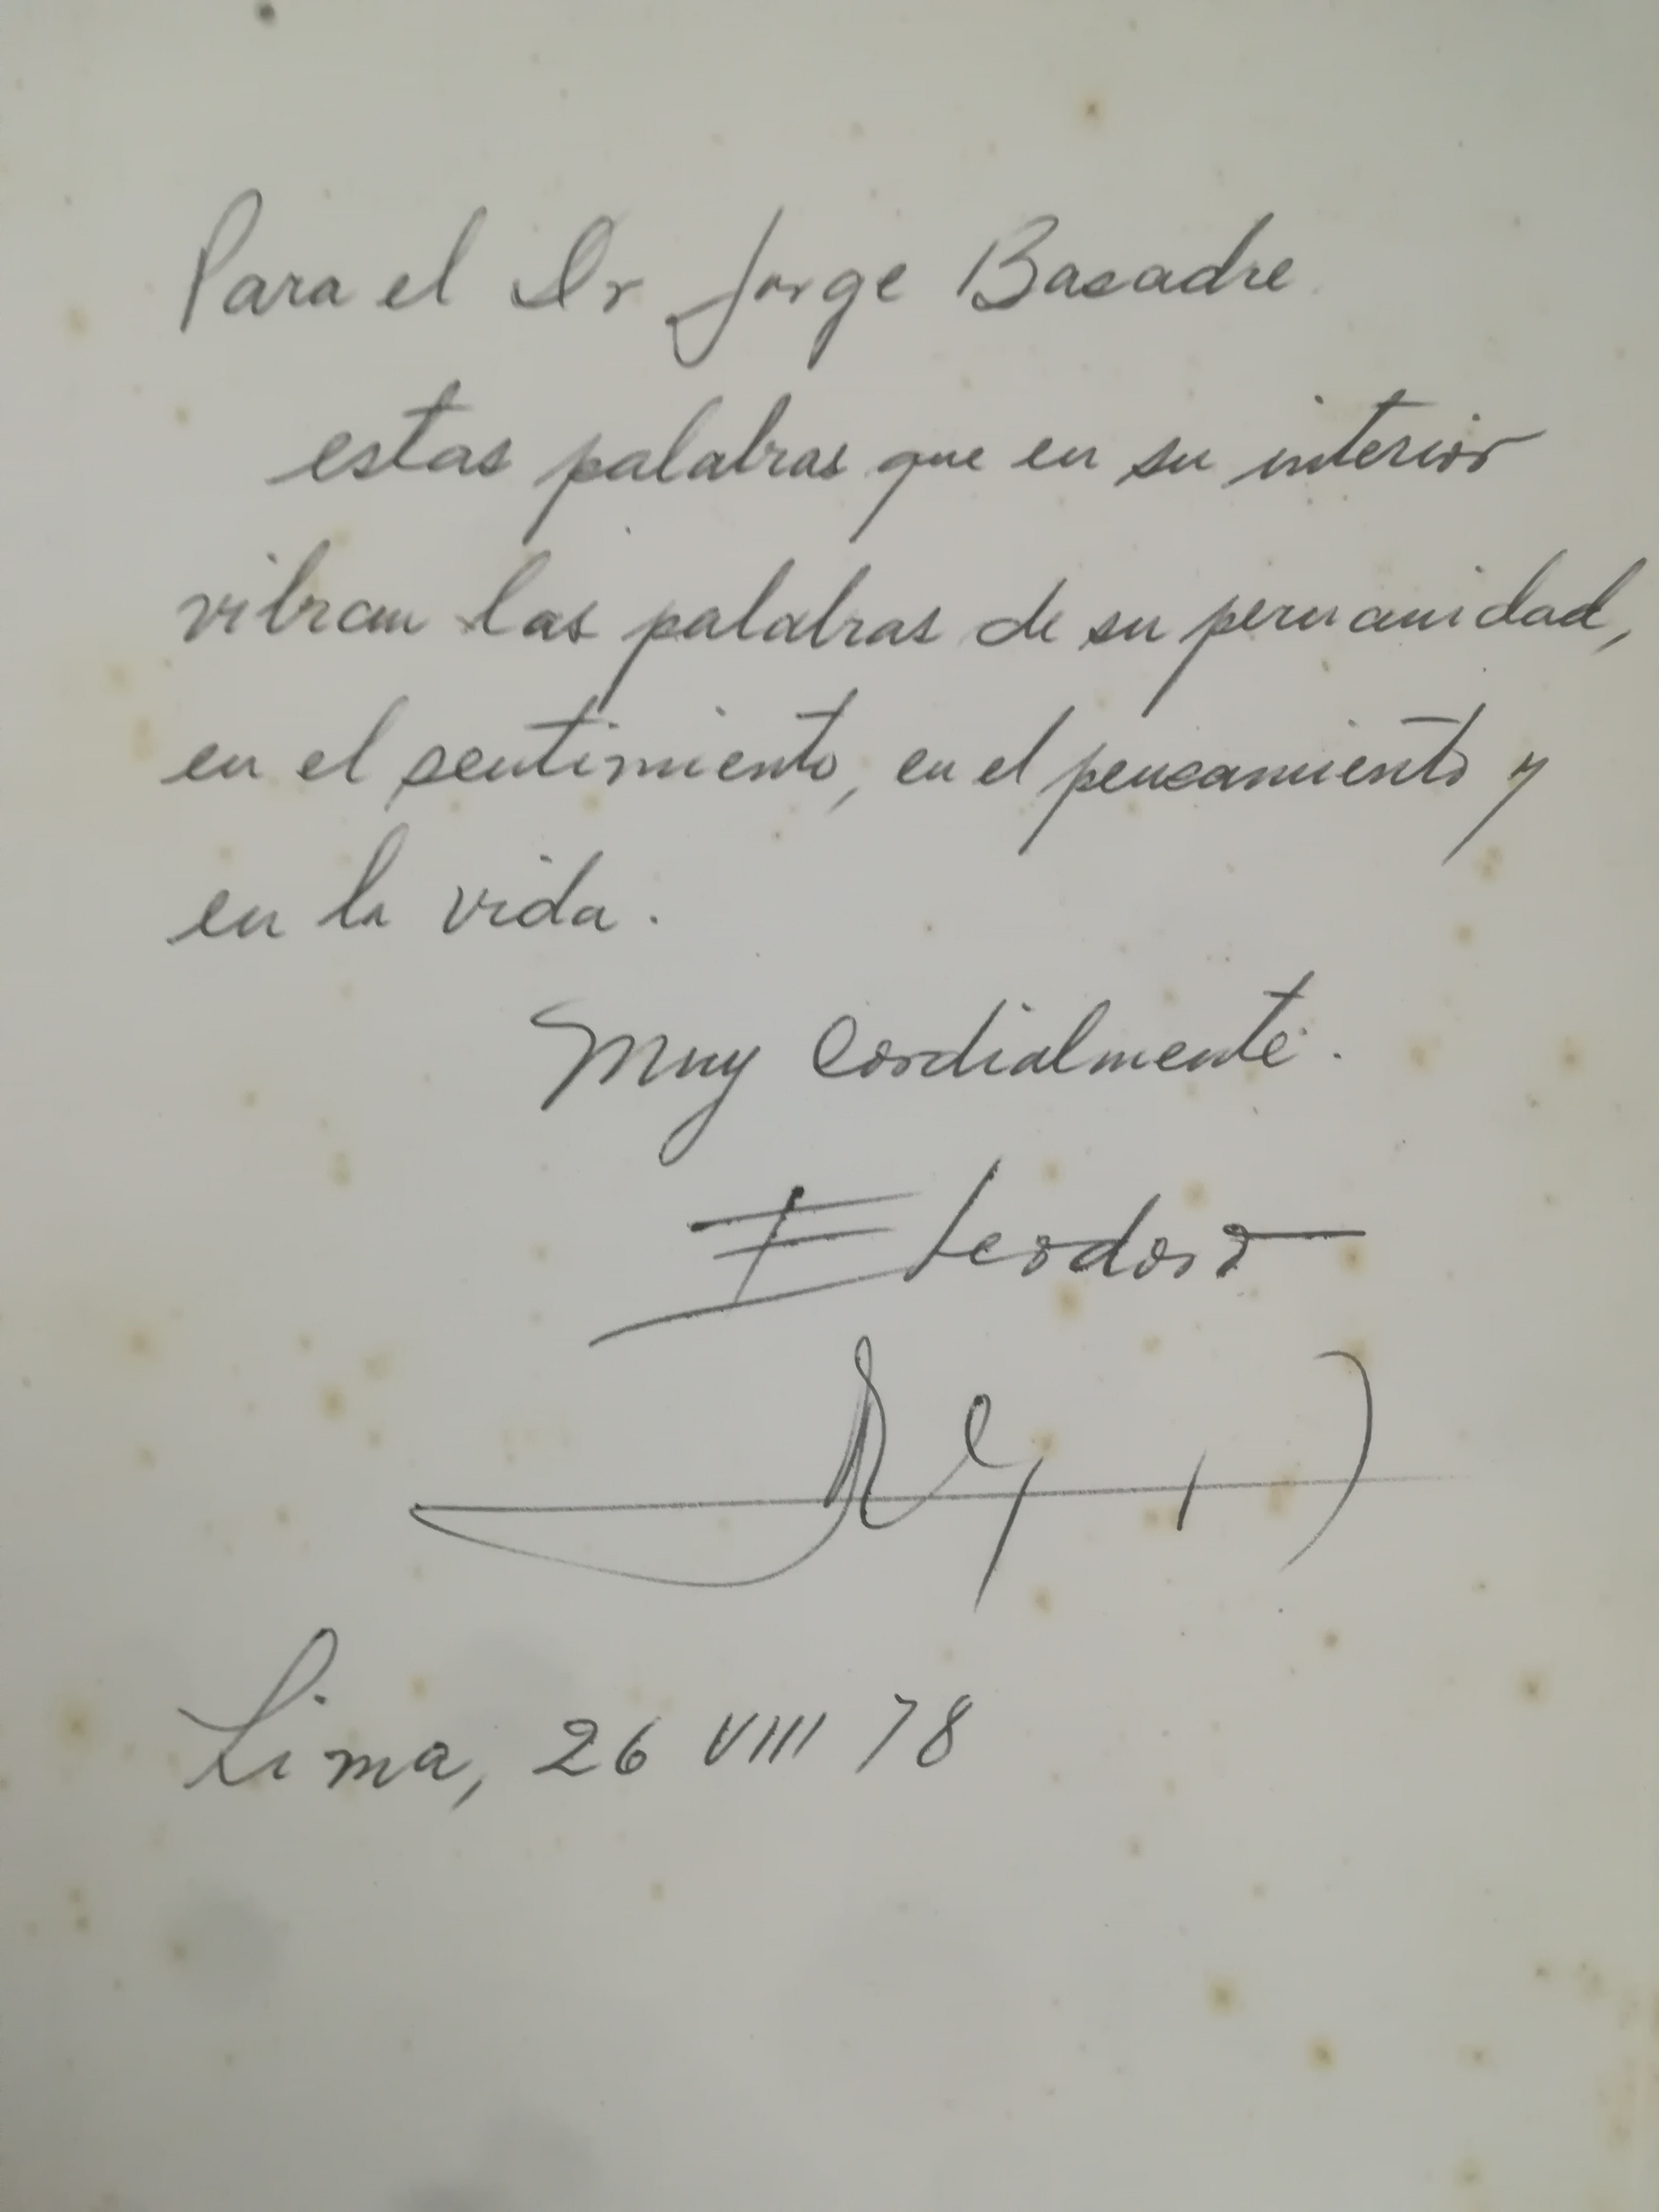 Para el Dr Jorge Basadre
estas palabras que en su interior
vibran las palabras de su peruanidad,
en el sentimiento, en el pensamiento y
en la vida.
Muy Cordialmente.
Eleodoro
Lima, 26 VIII 78